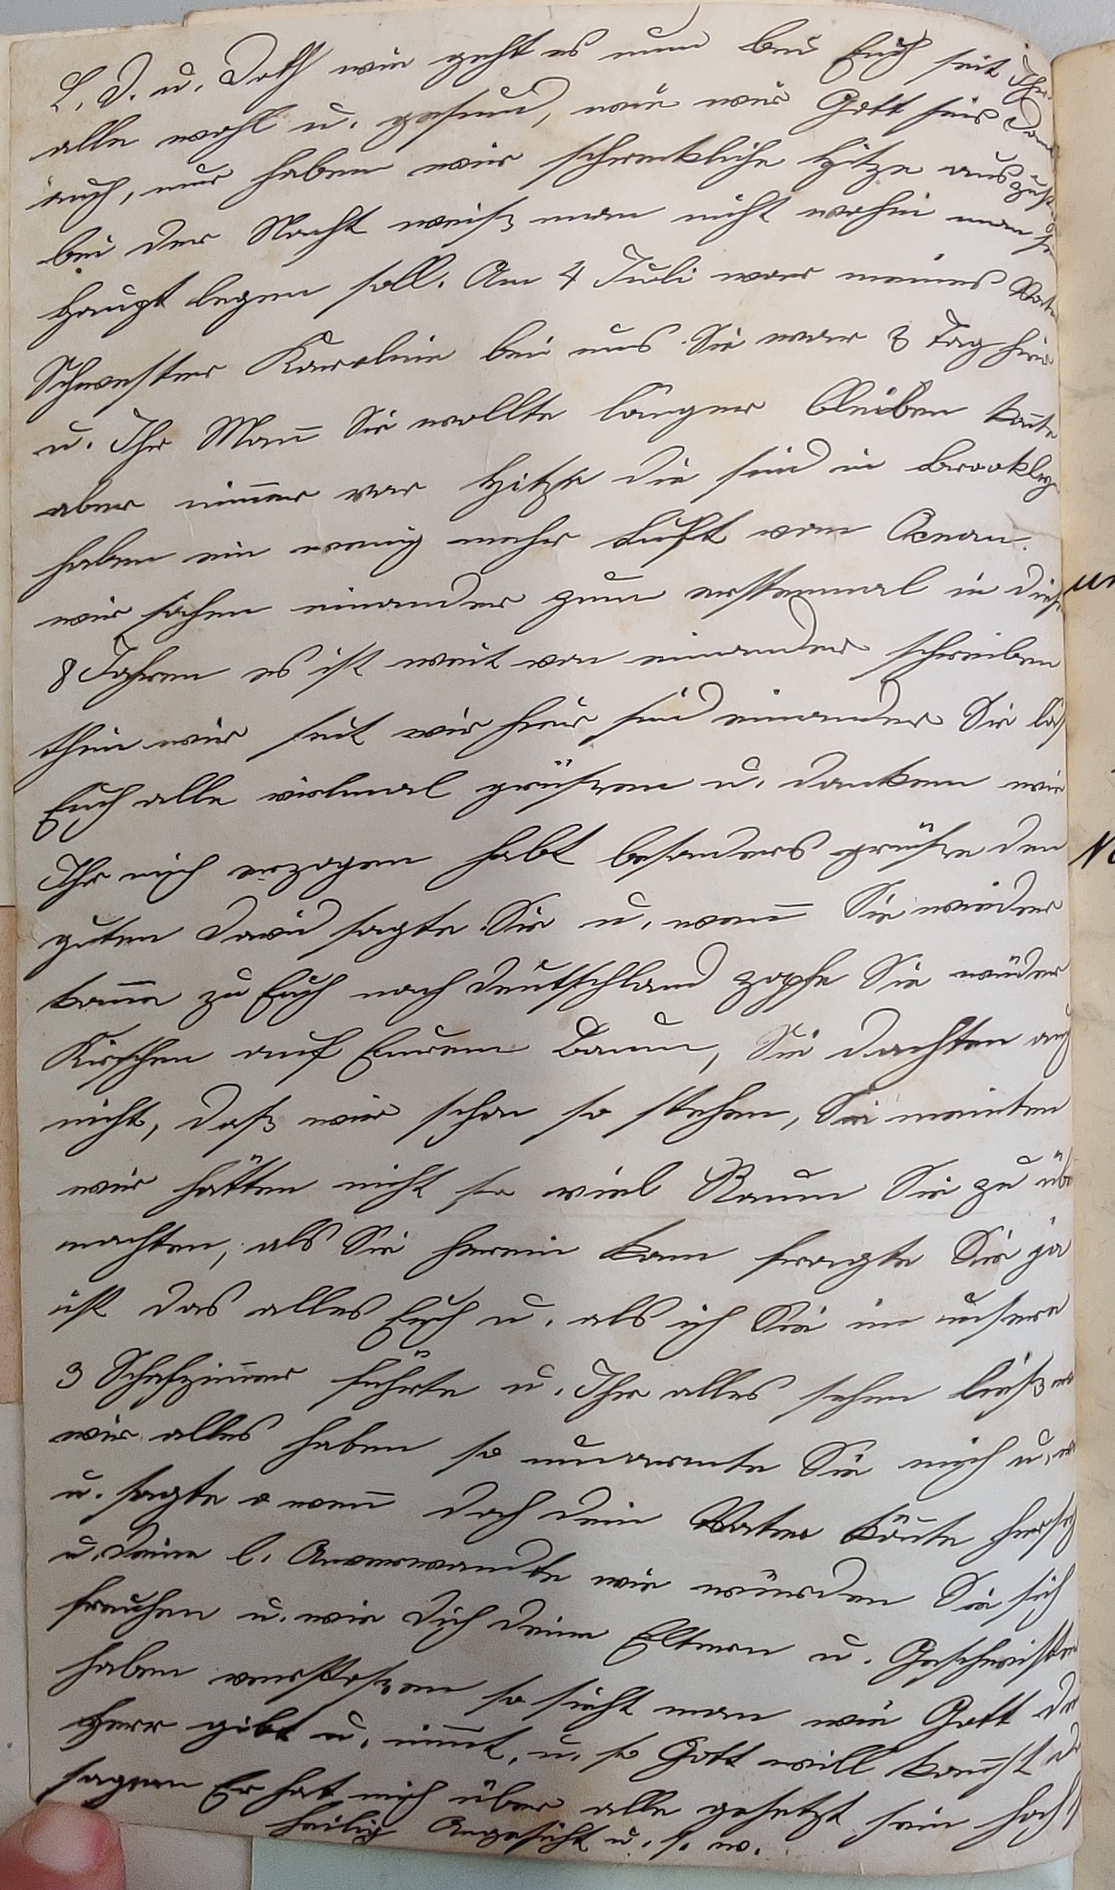 L. D. u. Doth wie geht es nun bei Euch seit Ihr
alle wohl u. gesund, wie wir Gott sei Dank
auch, nur haben wir schreckliche Hitze auszust
bei der Nacht weiß man nicht wohin man s
Haupt legen soll. Am 4 Juli war meines Vate
Schwester Karoline bei uns Sie war 3 Tag hier
u. Ihr Mann Sie wollte länger bleiben konte
aber nimmer vor Hitze die sind in Brookly
haben ein wenig mehr Luft vom Ocean.
wir sahen einander zum erstenmal in diese
8 Jahren es ist weit von einander schreiben
thun wir seit wir hier sind einander Sie läs
Euch alle vielmal grüßen u. danken wie
Ihr mich erzogen habt besonders grüße den
guten David sagte Sie u. wenn Sie wieder
komme zu Euch nach Deutschland zopfe Sie wieder
Kirschen auf Eurem Baum, Sie dachten auch
nicht, daß wir schon so stehen, Sie meinten
wir hätten nicht so viel Raum Sie zu übe
nachten, als Sie herein kam fragte Sie ja
ist das alles Euch u. als ich Sie in unsere
3 Schafzimmer führte u. Ihr alles sehen ließ
wir alles haben so umarmte Sie mich u.
u. sagte o wenn doch dein Vater könte herseh
u. deine l. Anverwandte wie würden Sie sich
freuhen u. wie dich deine Eltern u. Geschwister
haben verstoßen so sieht man wie Gott der
Herr gibt u. nimmt, u. so Gott will kannst du
sagen Er hat mich über alle gesetzt sein hoch
heilig Angesicht u. s. w.
un